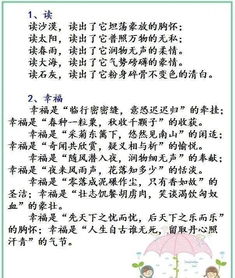 1、读
读沙漠，读出了它坦荡豪放的胸怀；
读太阳，读出了它普照万物的无私；
读春雨，读出了它润物无声的柔情。
读大海，读出了它气势磅礴的豪情。
读石灰，读出了它粉身碎骨不变色的清白。
2、幸福
幸福是“临行密密缝，意恐迟迟归”的牵挂；
幸福是“春种一粒粟，秋收千颗子”的收获。
幸福是“采菊东篱下，悠然见南山”的闲适；
幸福是“奇闻共欣赏，疑义相与析”的愉悦。
幸福是“随风潜入夜，润物细无声”的奉献；
幸福是“夜来风雨声，花落知多少”的恬淡。
幸福是“零落成泥碾作尘，只有香如故”的
圣洁；幸福是“壮志饥餐胡虏肉，笑谈渴饮匈奴
血”的豪壮。
幸福是“先天下之忧而忧，后天下之乐而乐”
的胸怀；幸福是“人生自古谁无死，留取丹心照
汗青”的气节。